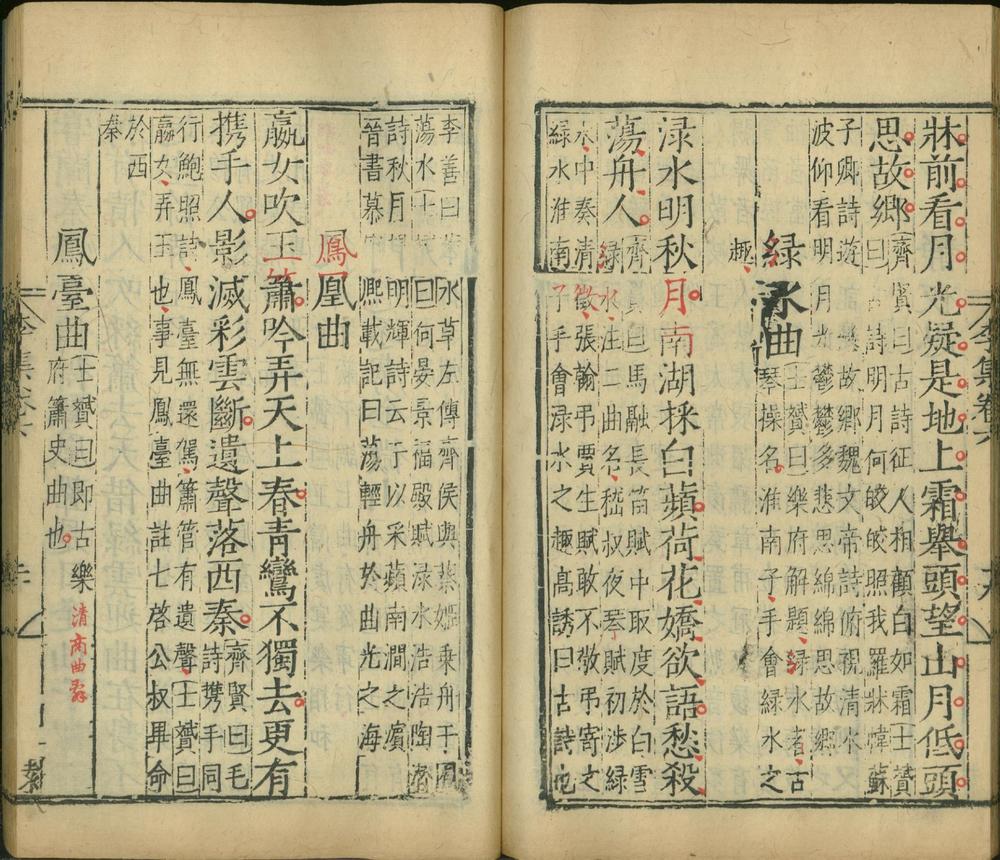 牀前看月光疑是地上霜舉頭望山月低頭
思故鄉
齊賢曰古詩征人相顧白如霜士贇
曰詩明月何皎皎照我羅牀幃蘇
子卿詩遊子戀故鄉魏文帝詩俯視清水
波仰看明月光鬱鬱多悲思綿綿思故鄉
綠水曲
士贇曰樂府解題綠水者古
琴操名淮南子手會綠水之
趣
淥水明秋月南湖採白蘋荷花嬌欲語愁殺
蕩舟人
齊賢曰馬融長笛賦中取度於白雪
綠水注二曲名嵇叔夜琴賦初涉綠
水中奏清徵張翰弔賈生賦敢不敬弔寄之
綠水淮南子手會淥水之趣高誘曰古詩也
李善曰淥水草左傳齊侯與蔡姬乘舟于囿
蕩水士曰何晏景福殿賦淥水浩浩陶潛
詩秋月明輝詩云于以采蘋南澗之濱
晉書慕熙載記曰蕩輕舟於曲光之海
鳳凰曲
嬴女吹玉簫吟弄天上春青鸞不獨去更有
携手人影滅彩雲斷遺聲落西秦
齊賢曰毛
詩携手同
行鮑照詩鳳臺無還駕簫管有遺聲士贇曰
嬴女弄玉也事見鳳臺曲註七啓公叔畢命
於西
秦
鳳臺曲
士贇曰即古樂
府簫史曲也
清商曲辭
李集卷六